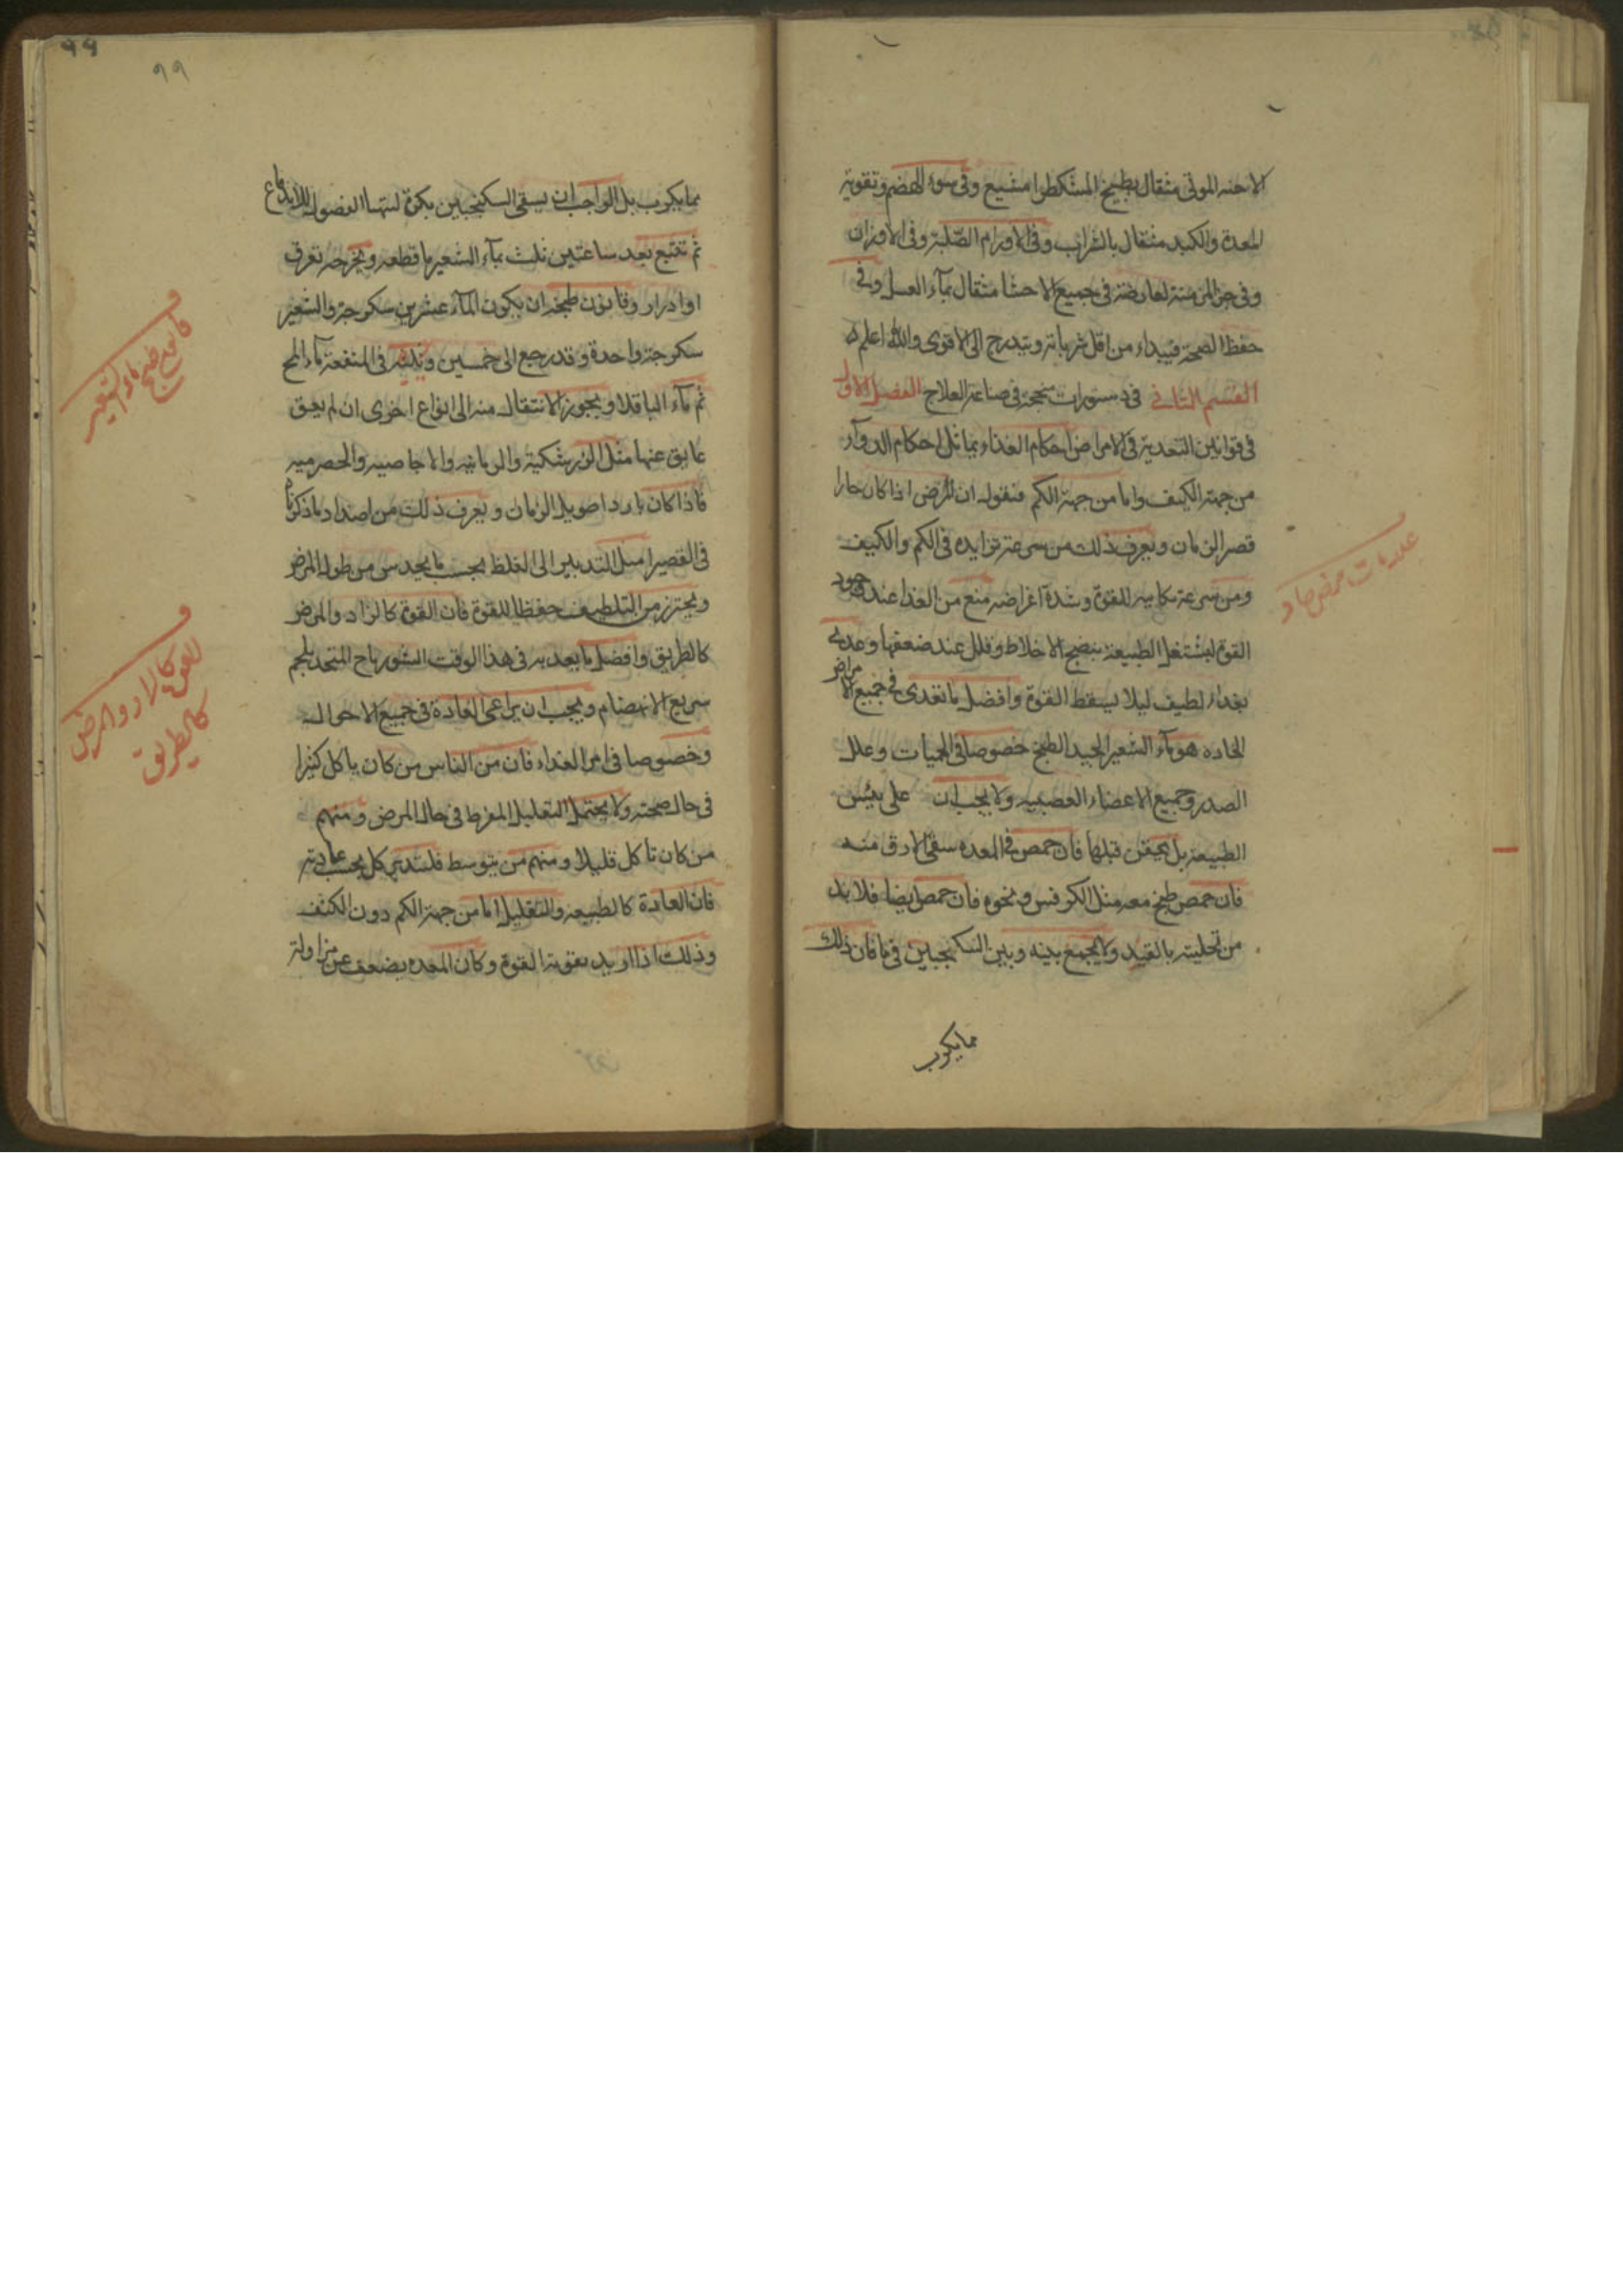 الاجنه الموتى مثقال بطبيخ المشكطرامشيع وفى سوء الهضم وتقوية
المعدة والكبد مثقال بالشراب وفى الاورام الصلبة وفى الاوزان
وفى المزمنة لعارضة فى جميع الاحشا مثقال بمآء العسل وفى
حفظ الصحة فيبداء من اقل شرباته ويتدرج الى الاقوى والله اعلم
القسم الثانى فى دستورات منجحة فى صناعة العلاج الفصل الاول
فى قوانين التغدية فى الامراض احكام الغذاء يماثل احكام الدوآء
من جهة الكيف واما من جهة الكم فنقول ان المرض اذا كان حارا
قصر الزمان ويعرف ذلك من سرعة تزايده فى الكم والكيف
ومن سرعة نكايته للقوة وشدة اعراضه منع من الغذا عند وجود
القوة ليشتغل الطبيعة بنضج الاخلاط وقلل عند ضعفها وعدل
بغداء لطيف ليلا يسقط القوة وافضل ما تغدى فى جميع الامراض
الحاده هو مآء الشعير الجيد الطبخ خصوصا فى الحميات وعلل
الصدر وجميع الاعضاء العصبيه ولا يجب ان على يبس
الطبيعة بل يحقن قبلها فان حمص فى المعده سقى الارق منه
فان حمص طبخ معه مثل الكرفس ونحوه فان حمص ايضا فلا بد
من تحليته بالقند ولا يجمع بينه وبين السكنجبين فى ما فان ذلك
مما يكرب
علامات مرض حاد
٩٩
٩٩
مما يكرب بل الواجب ان يسقى السكنجبين بكرة لتهيأ الفضول للاندفاع
ثم تتبع بعد ساعتين ثلث بمآء الشعير ما قطعه ويخرجه تعرق
او ادرار وقانون طبخه ان يكون المآء عشرين سكرجة والشعير
سكرجة واحدة وقد رجع الى خمسين ويليه فى المنفعة مآء المح
ثم مآء الباقلا ويجوز الانتقال منه الى انواع اخرى ان لم يعق
عايق عنها مثل الزرشكية والرمانيه والاجاصيه والحصرميه
فاذا كان باردا طويل الزمان ويعرف ذلك من اضداد ما ذكرنا
فى القصير اميل التدبير الى الغلظ بحسب ما يحدس من طول المرض
ويحترز من التلطيف حفظا للقوة فان القوة كالزاد والمرض
كالطريق وافضل ما يغديه فى هذا الوقت الشورباج المتخد بلحم
سريع الانهضام ويجب ان يراعى العادة فى جميع الاحوال
وخصوصا فى امر الغداء فان من الناس من كان ياكل كثيرا
فى حال صحته ولا يحتمل التقليل المفرط فى حال المرض ومنهم
من كان تاكل قليلا ومنهم من يتوسط فلتدبر كل بحسب عادته
فان العادة كالطبيعه والتقليل اما من جهة الكم دون الكيف
وذلك اذا اريد تقوية القوة وكان المعده يضعف عن مزاولة
قانون طبخ ماء الشعير
القوة كالزاد والمرض
كالطريق